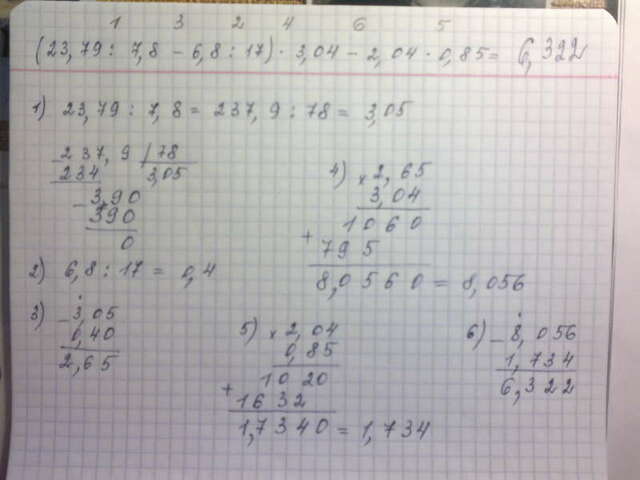 1 3 2 4 6 5
(23,79 : 7,8 − 6,8 : 17) · 3,04 − 2,04 · 0,85 = 6,322
1) 23,79 : 7,8 = 237,9 : 78 = 3,05
237,9 | 78
234 3,05
− 3,90
390
0
2) 6,8 : 17 = 0,4
3) − 3,05
0,40
2,65
4) × 2,65
3,04
1060
+ 795
8,0560 = 8,056
5) × 2,04
0,85
1020
+ 1632
1,7340 = 1,734
6) − 8,056
1,734
6,322